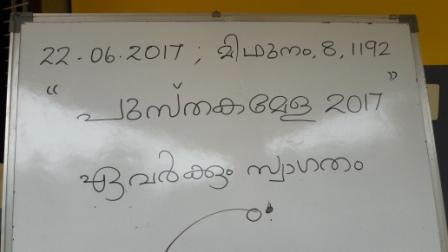 22.06.2017 ; മിഥുനം, 8, 1192
“ പുസ്തകമേള 2017 ”
ഏവർക്കും സ്വാഗതം